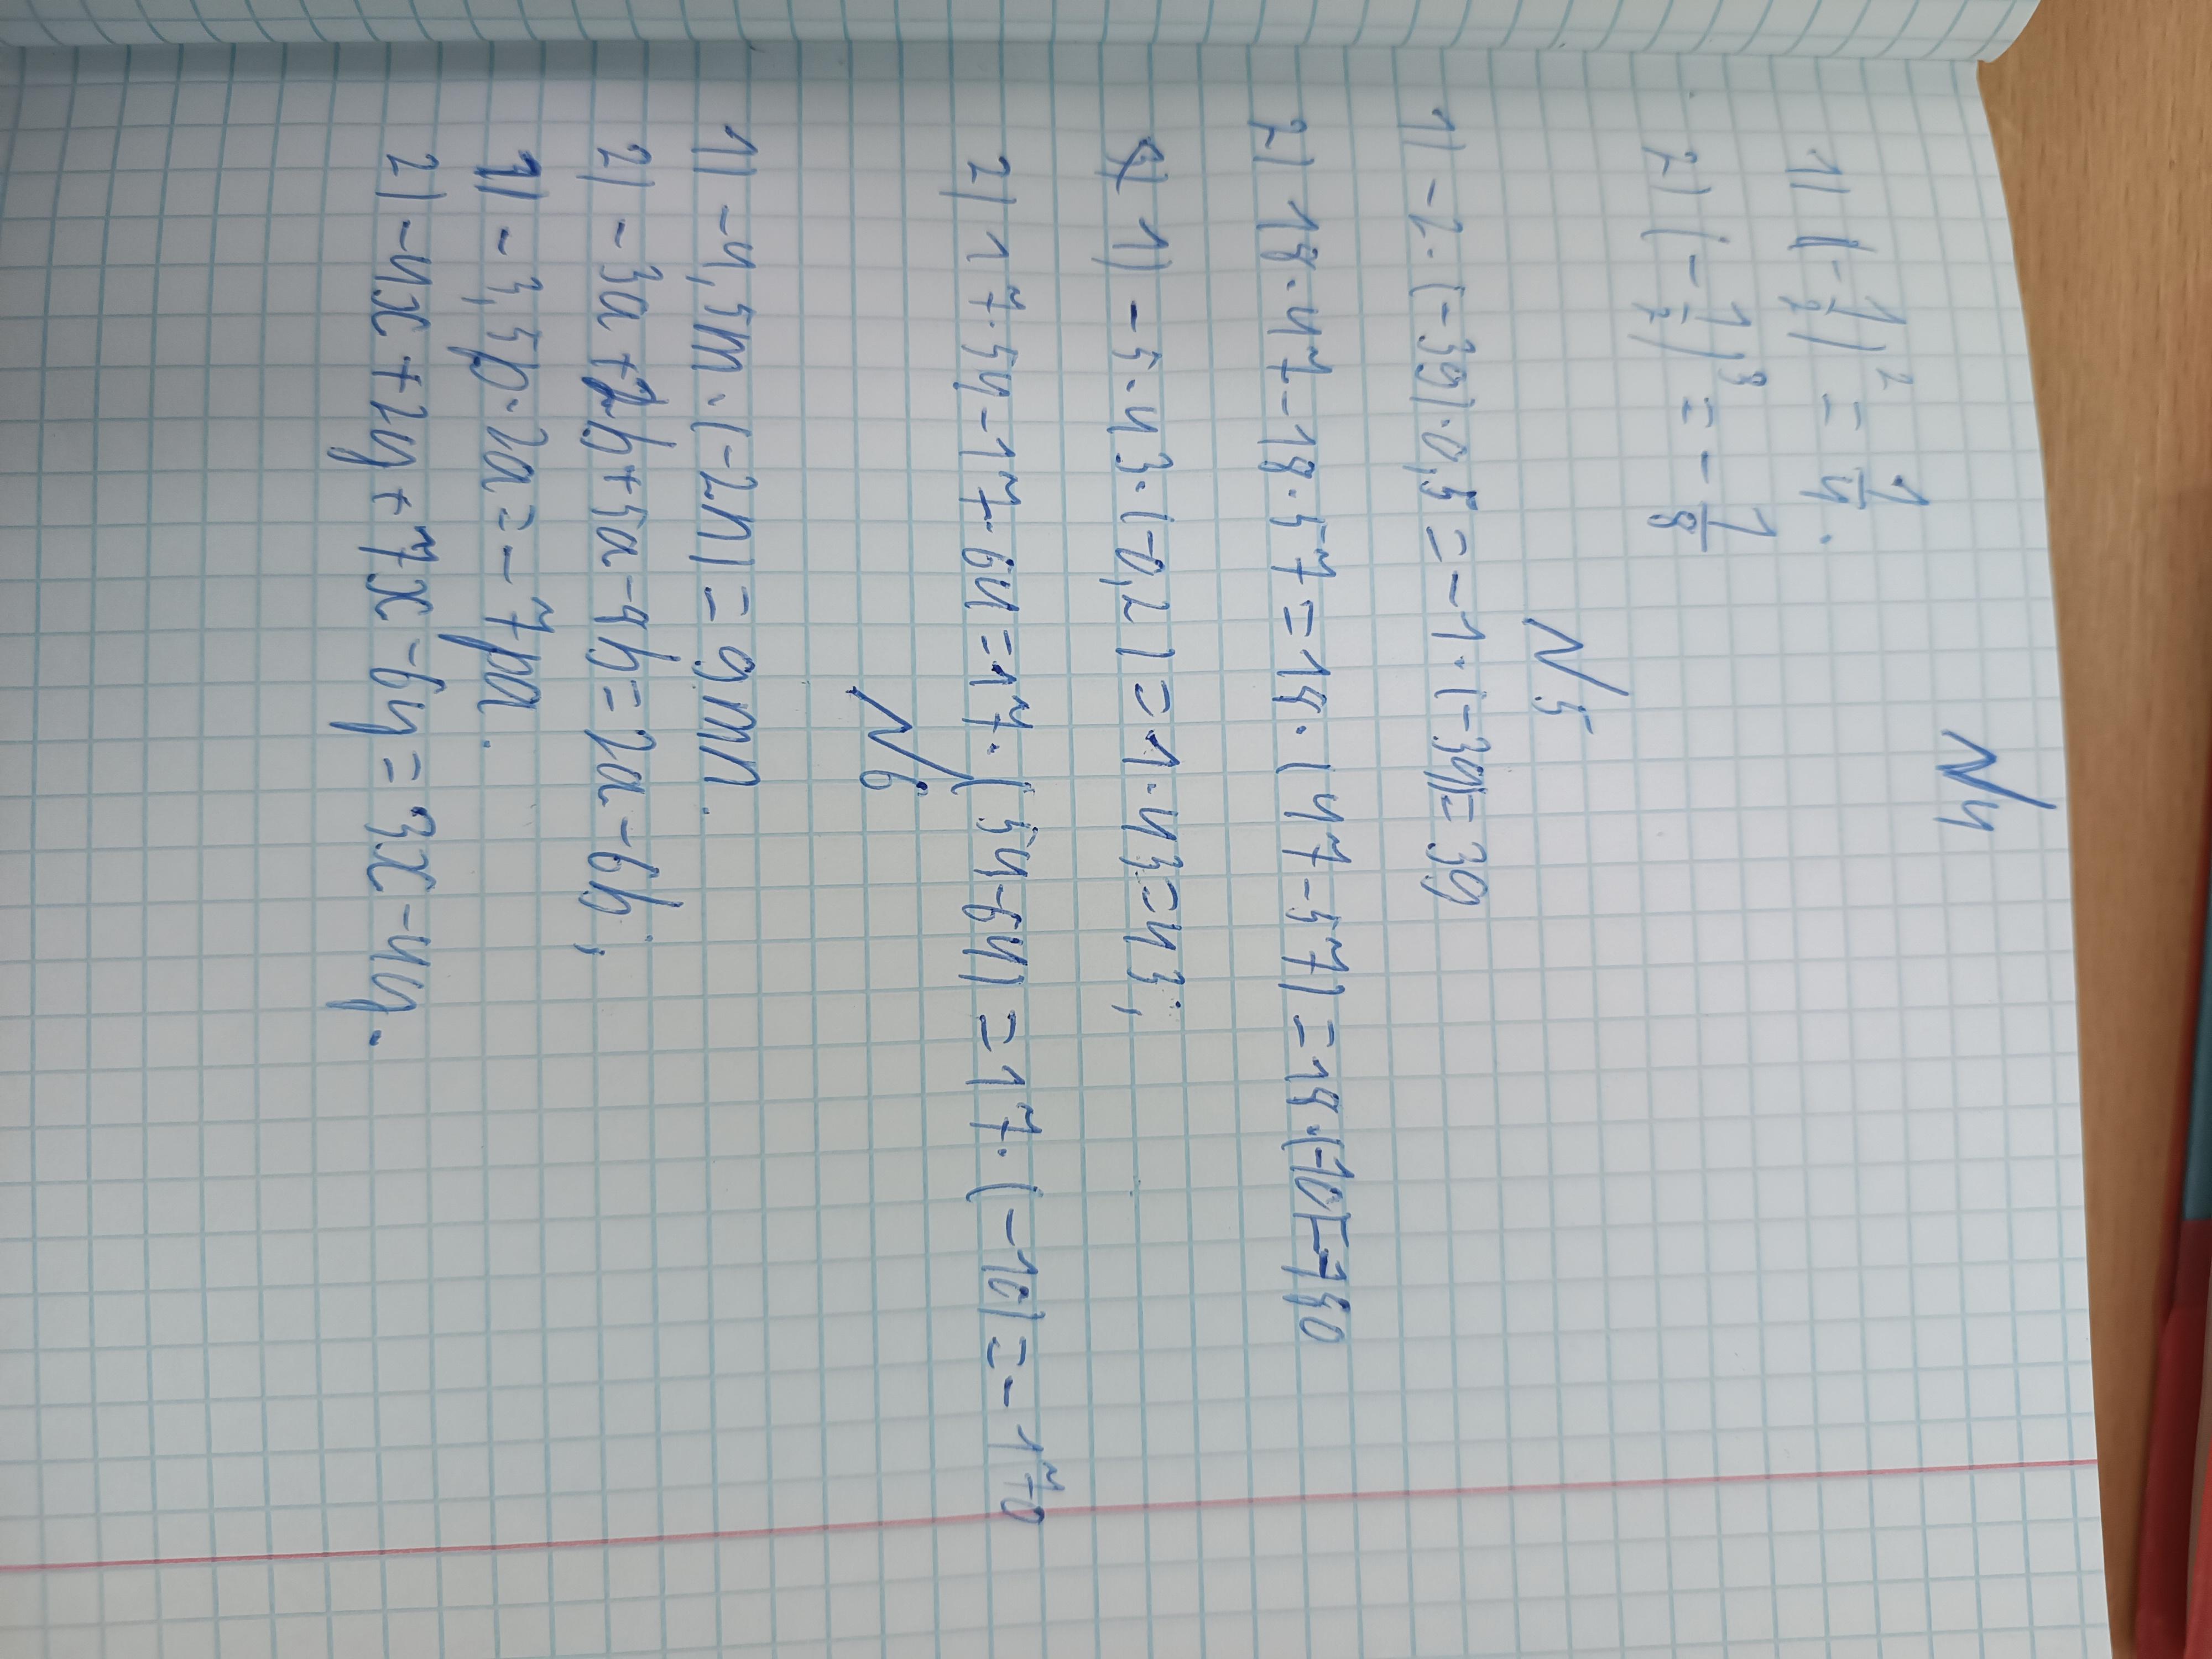 N4
1) (-1/2)² = 1/4.
2) (-1/2)³ = -1/8
N5
1) -2·(-39)·0,5=-1·(-39)=39
2) 18·47-18·57=18·(47-57)=18·(-10)=-180
1) -5·43·(-0,2)=1·43=43;
2) 17·54-17·64=17·(54-64)=17·(-10)=-170
N6
1) -4,5m·(-2n)=9mn.
2) -3a+2b+5a-8b=2a-6b;
1) -3,5p·2a=-7pa.
2) -4x+2y+7x-6y=3x-4y.